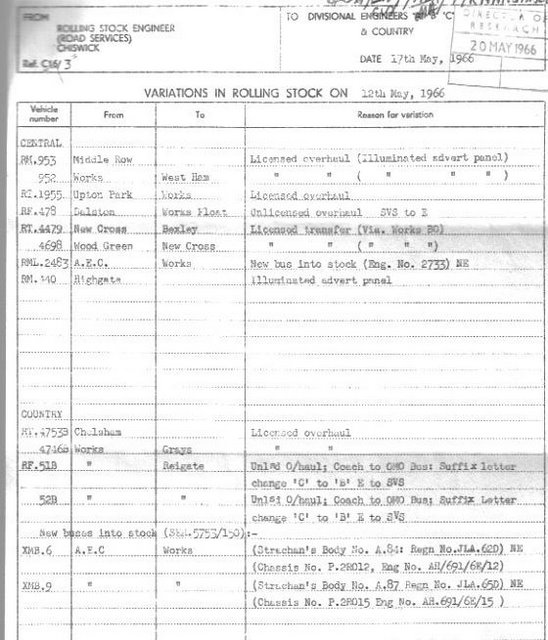 FROM
ROLLING STOCK ENGINEER
(ROAD SERVICES)
CHISWICK
Ref. C16/3
TO DIVISIONAL ENGINEERS 'A' 'B' 'C'
& COUNTRY
DATE 17th May, 1966
DIRECTOR OF
RESEARCH
20 MAY 1966
VARIATIONS IN ROLLING STOCK ON 12th May, 1966
Vehicle number From To Reason for variation
CENTRAL
RM.953 Middle Row Licensed overhaul (Illuminated advert panel)
952 Works West Ham " " ( " " ")
RT.1955 Upton Park Works Licensed overhaul
RF.478 Dalston Works Float Unlicensed overhaul SVS to E
RT.4479 New Cross Bexley Licensed transfer (Via. Works BO)
4698 Wood Green New Cross " " ( " " ")
RML.2483 A.E.C. Works New bus into stock (Eng. No. 2733) NE
Highgate Illuminated advert panel
COUNTRY
RT.4753B Chelsham Licensed overhaul
4746B Works Grays " "
RF.51B " Reigate Unlsd O/haul; Coach to OMO Bus: Suffix letter
change 'C' to 'B' E to SVS
52B " " Unlsd O/haul; Coach to OMO Bus; Suffix Letter
change 'C' to 'B' E to SVS
New buses into stock :-
XMB.6 A.E.C Works (Strachan's Body No. A.84: Regn No.JLA.62D) NE
(Chassis No. P.2R012, Eng No. AH/691/6E/12)
XMB.9 " " (Strachan's Body No. A.87 Regn No. JLA.65D) NE
(Chassis No. P.2R015 Eng No. AH.691/6E/15 )